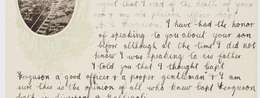 that I read of the death of your
I have had the honor
of speaking to you about your son
before although at the time I did not
know I was speaking to his father
I told you that I thought Capt
Ferguson a good officer & a proper gentleman & I am
sure this is the opinion of all who knew Capt Ferguson